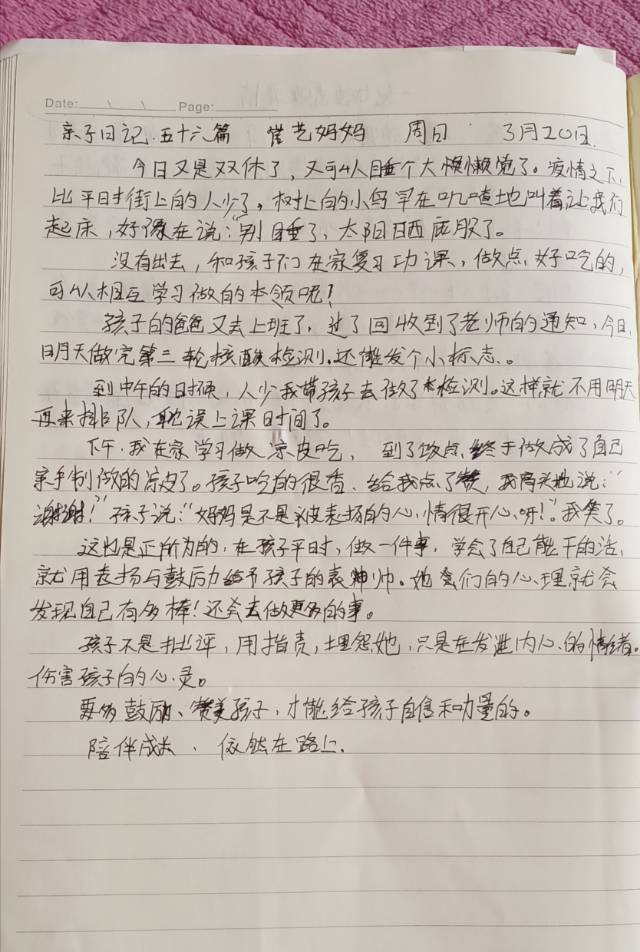 Date: \ \ Page:
亲子日记.五十六篇 崔艺妈妈 周日 3月20日
今日又是双休了,又可以睡个大懒觉了。疫情之下,
比平时街上的人少了。树上的小鸟早在叽喳地叫着让我们
起床,好像在说:"别睡了,太阳晒屁股了。
没有出去,和孩子们在家复习功课,做点好吃的,
可以相互学习做的本领呢!
孩子的爸爸又去上班了,过了回收到了老师的通知,今日,
明天做完第三轮核酸检测.还你发个小标志.。
到中午的时候,人少我带孩子去做了检测。这样就不用明天
再来排队,耽误上课时间了。
下午.我在家学习做凉皮吃,到了饭点,终于做成了自己
亲手制做的凉皮了。孩子吃的很香.给我点了赞,我高兴地说:"
谢谢!"孩子说:"妈妈是不是被表扬的心情很开心呀!"。我笑了。
这也是正所为的,在孩子平时,做一件事,学会了自己能干的活,
就用表扬与鼓励给予孩子的表 帅。她会们的心理就会
发现自己有多棒!还会去做更多的事。
孩子不是批评,用指责,埋怨她,只是在发泄内心的情绪。
伤害孩子的心灵。
要多鼓励、赞美孩子,才能给孩子自信和力量的。
陪伴成长、依然在路上.